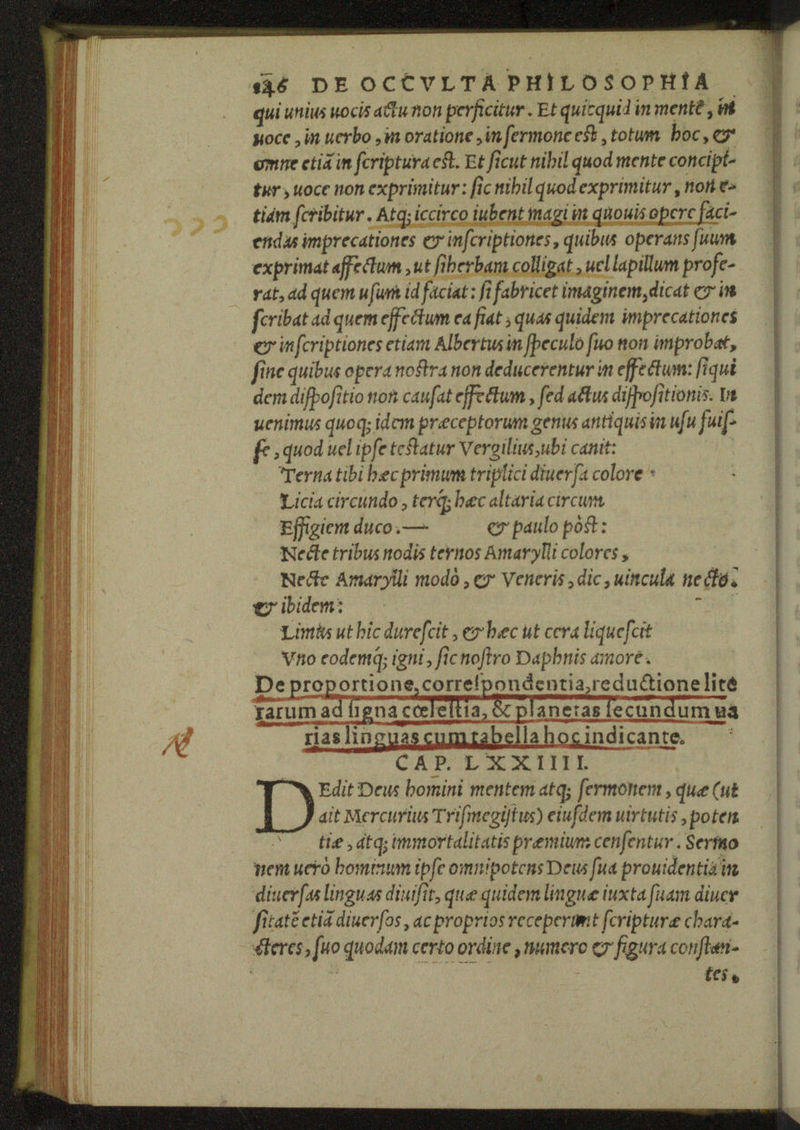 146 DE OCCVLTA PHILOSOPHIA
qui unius uocis actu non perficitur. Et quicquid in mente, in
uoce, in uerbo, in oratione, in sermone est, totum hoc, &
omne etiã in scriptura est. Et sicut nihil quod mente concipi-
tur, uoce non exprimitur: sic nihil quod exprimitur, non e-
tiam scribitur. Atq; iccirco iubent magi in quouis opere faci-
endas imprecationes & inscriptiones, quibus operans suum
exprimat affectum, ut si herbam colligat, uel lapillum profe-
rat, ad quem usum id faciat: si fabricet imaginem, dicat & in
scribat ad quem effectum ea fiat, quas quidem imprecationes
& inscriptiones etiam Albertus in speculo suo non improbat,
sine quibus opera nostra non deducerentur in effectum: siqui
dem dispositio non causat effectum, sed actus dispositionis. In
uenimus quoq; idem præceptorum genus antiquis in usu fuis-
se, quod uel ipse testatur Vergilius, ubi canit:
Terna tibi hæc primum triplici diuersa colore
Licia circundo, terq́; hæc altaria circum
Effigiem duco.— & paulo pòst:
Necte tribus nodis ternos Amarylli colores,
Necte Amarylli modò, & Veneris, dic, uincula necto.
& ibidem:
Limus ut hic durescit, & hæc ut cera liquescit
Vno eodemq́; igni, sic nostro Daphnis amore.
De proportione, correspondentia, reductione lite
rarum ad signa cœlestia, & planetas secundum ua
rias linguas cum tabella hoc indicante.
CAP. LXXIIII.
DEdit Deus homini mentem atq; sermonem, quæ (ut
ait Mercurius Trismegistus) eiusdem uirtutis, poten
tiæ, atq; immortalitatis præmium censentur. Sermo
nem uerò hominum ipse omnipotens Deus sua prouidentia in
diuersas linguas diuisit, quæ quidem linguæ iuxta suam diuer
sitatẽ etiã diuersos, ac proprios receperunt scripturæ chara-
cteres, suo quodam certo ordine, numero & figura constan-
tes.